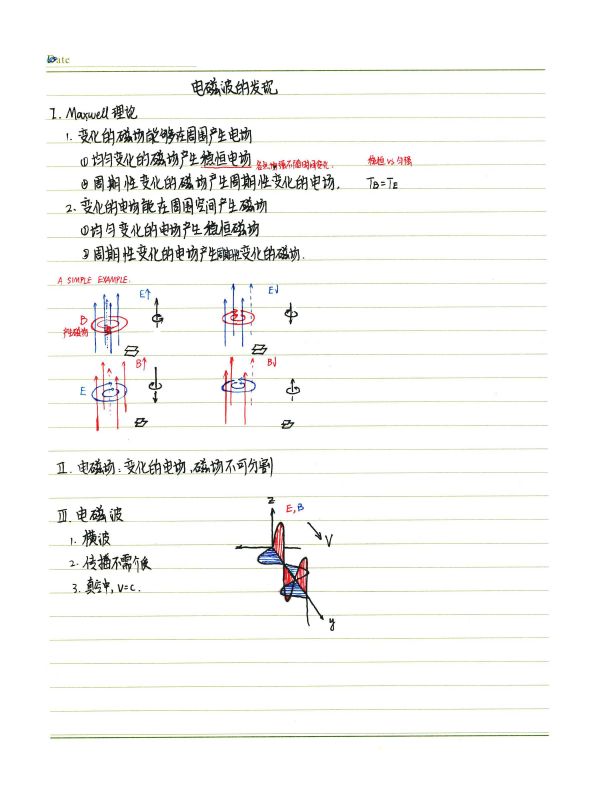 Date
电磁波的发现
I. Maxwell 理论
1. 变化的磁场能够在周围产生电场
①均匀变化的磁场产生稳恒电场 各点场强不随时间变化. 稳恒 vs 匀强
②周期性变化的磁场产生周期性变化的电场. TB=TE
2. 变化的电场能在周围空间产生磁场
①均匀变化的电场产生稳恒磁场
②周期性变化的电场产生周期性变化的磁场.
A SIMPLE EXAMPLE.
E↑ E↓
B
B↑ B↓
E
II. 电磁场: 变化的电场、磁场不可分割
III. 电磁波
1. 横波
2. 传播不需介质
3. 真空中, V=C.
z
E, B
V
y